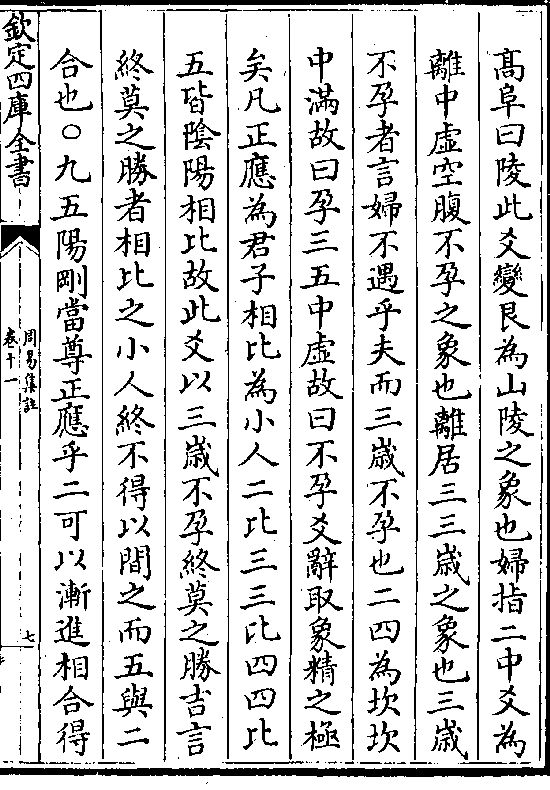 高阜曰陵此爻變艮為山陵之象也婦指二中爻為
離中虚空腹不孕之象也離居三三嵗之象也三嵗
不孕者言婦不遇乎夫而三嵗不孕也二四為坎坎
中滿故曰孕三五中虚故曰不孕爻辭取象精之極
矣凡正應為君子相比為小人二比三三比四四比
五皆陰陽相比故此爻以三嵗不孕終莫之勝吉言
終莫之勝者相比之小人終不得以間之而五與二
合也○九五陽剛當尊正應乎二可以漸進相合得
欽定四庫全書
周易集註
卷十一
七